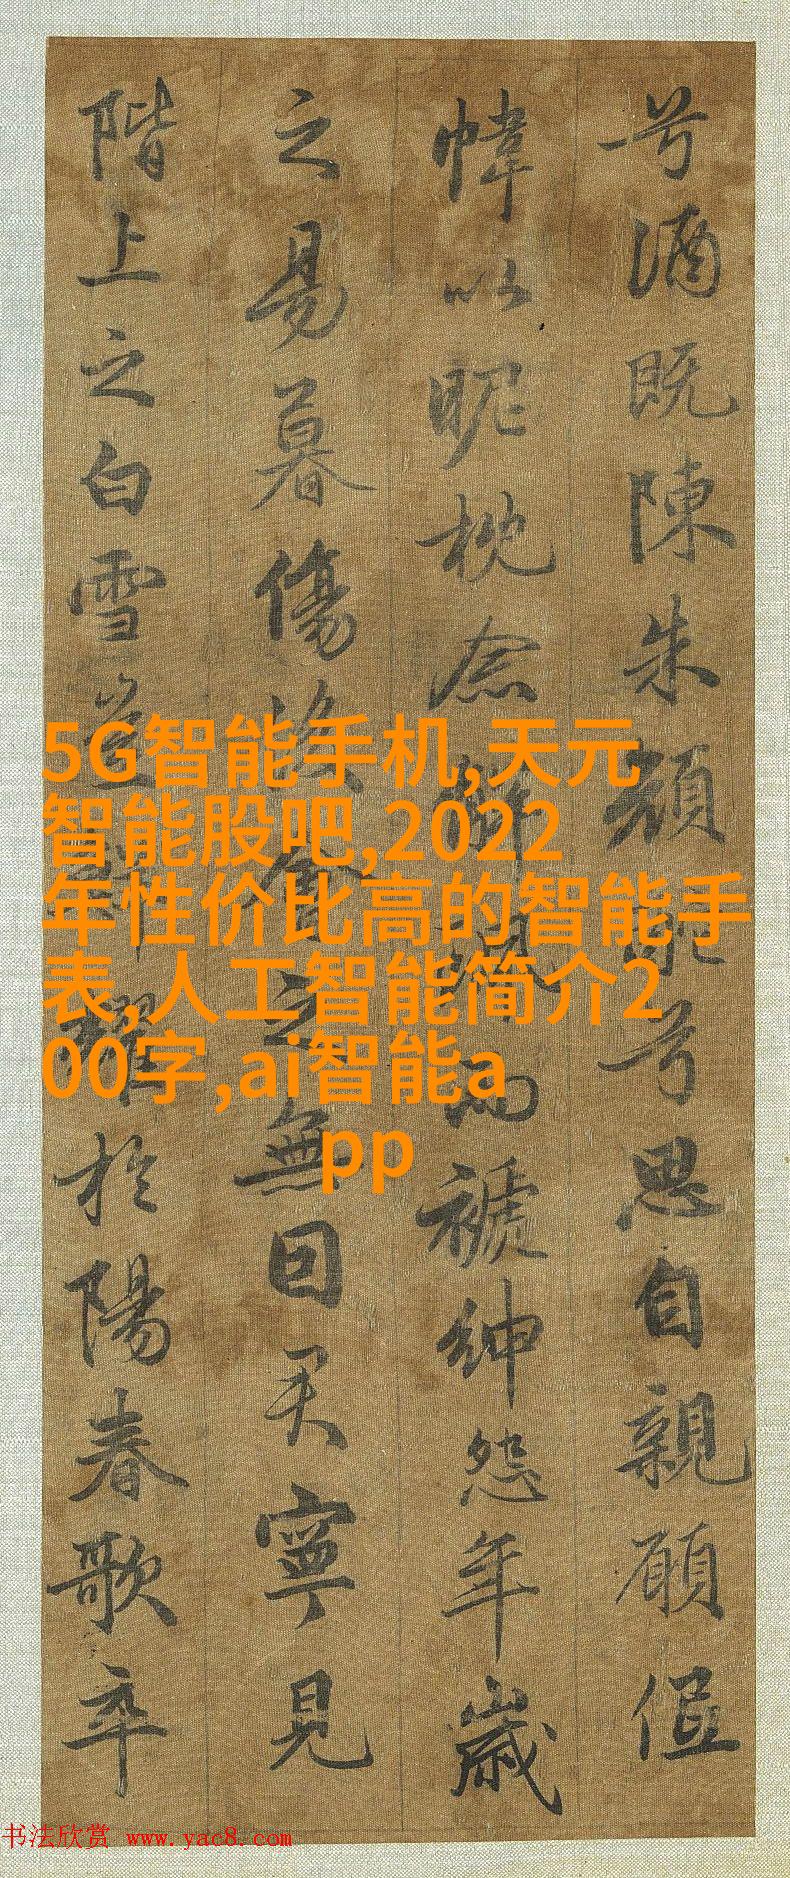 兮酒既陳朱顏酡兮思自親願低
幃以昵枕念解珮而褫紳怨年歲
之易暮傷後會之無因君寧見
階上之白雪豈鮮耀於陽春歌卒
5G智能手机,天元
智能股吧,2022
年性价比高的智能手
表,人工智能简介2
00字,ai智能a
pp
书法欣赏 www.yac8.com